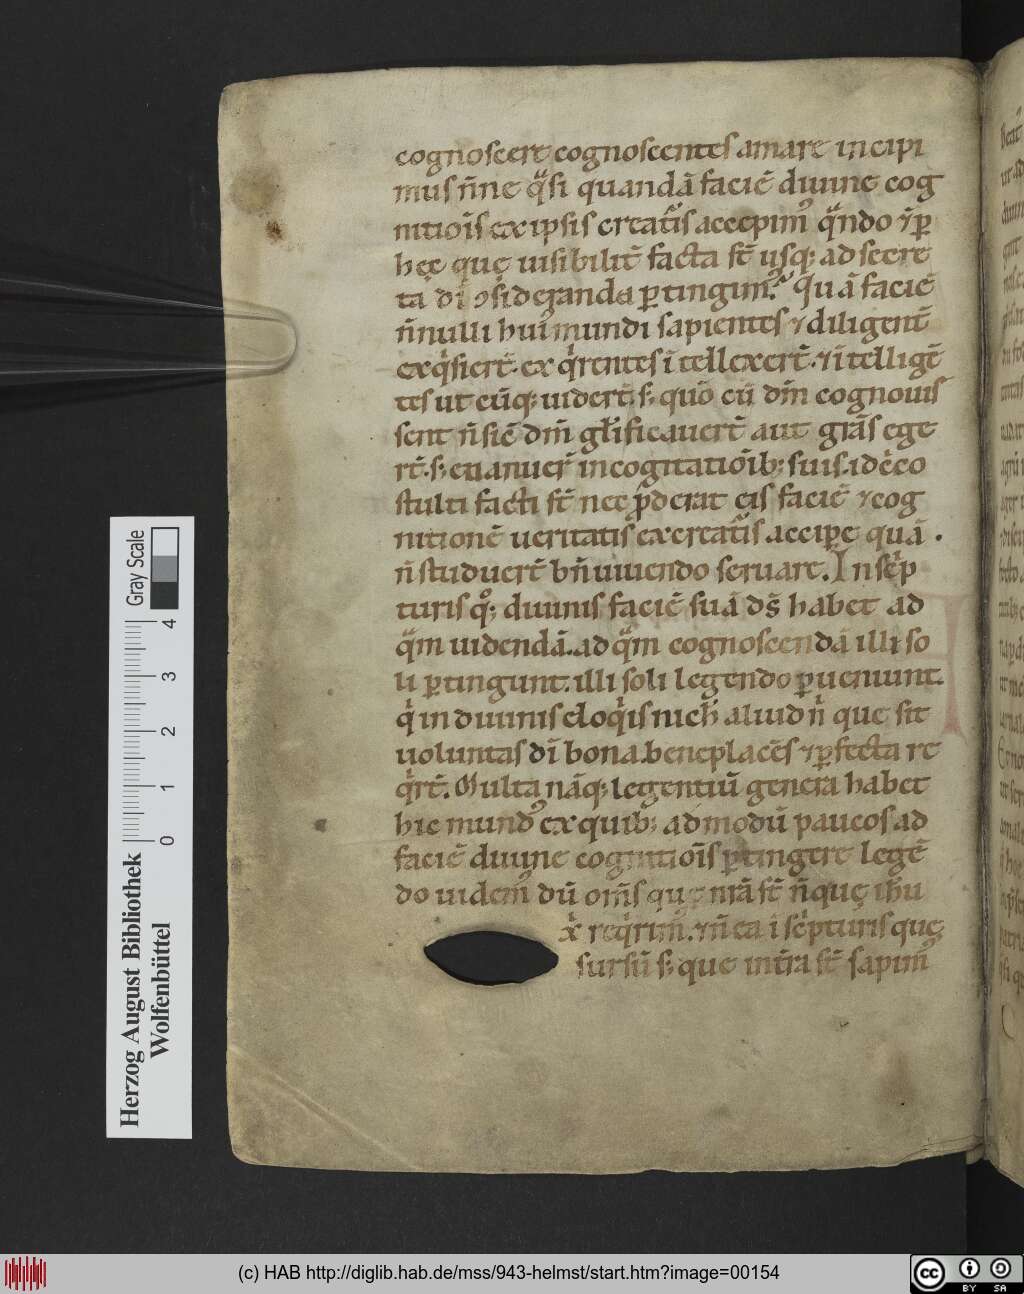 cognoscere cognoscentes amare incipi
mus n̄ne qͣsi quandā faciē diuine cog
nitiois̄ ex ipsis creatis̄ accepimꝰ qͣndo ⁊ ꝑ
hęc quę uisibilit̄ facta st̄ usq; ad secre
ta dī ꝯsideranda ꝑtingimꝰ. Quā faciē
n̄nulli huiꝰ mundi sapientes ⁊ diligent̄
exqͥsiert̄. exqͥrentes ītellexert̄. ⁊ ītelligē
tes ut cūq; uidert̄. s; quō cū dm̄ cognouis
sent n̄ sic̄ dm̄ glīficauert̄ aut grās ege
rt̄. s; euanuer̄ in cogitatiōib; suis. idc̄co
stulti facti st̄ nec p̄derat eis faciē ⁊ cog
nitionē ueritatis ex creatis̄ accipe quā
n̄ studuert̄ bn̄ uiuendo seruare. In scͥp
turis qͦ; diuinis faciē suā ds̄ habet ad
qͣm uidendā. ad qͣm cognoscendā illi so
li ꝑtingunt. illi soli legendo ꝑueniunt.
qͥ in diuinis eloqͥis nich̄ aliud nͥ que sit
uoluntas dī bona. beneplacēs ⁊ ꝑfecta re
qͥrt̄. Multa nāq; legentiū genera habet
hic mundꝰ ex quib; admodū paucos ad
faciē diuine cognitiois̄ ꝑtingere legē
do uidemꝰ dū om̄s quę nrā st̄ n̄ quę ihu̅
xͥ reqͥrimꝰ. ⁊ n̄ ea ī scͥpturis que
sursū s; que int̄ra st̄ sapimꝰ
Gray Scale
0 1 2 3 4
Herzog August Bibliothek
Wolfenbüttel
(c) HAB http://diglib.hab.de/mss/943-helmst/start.htm?image=00154
cc BY SA